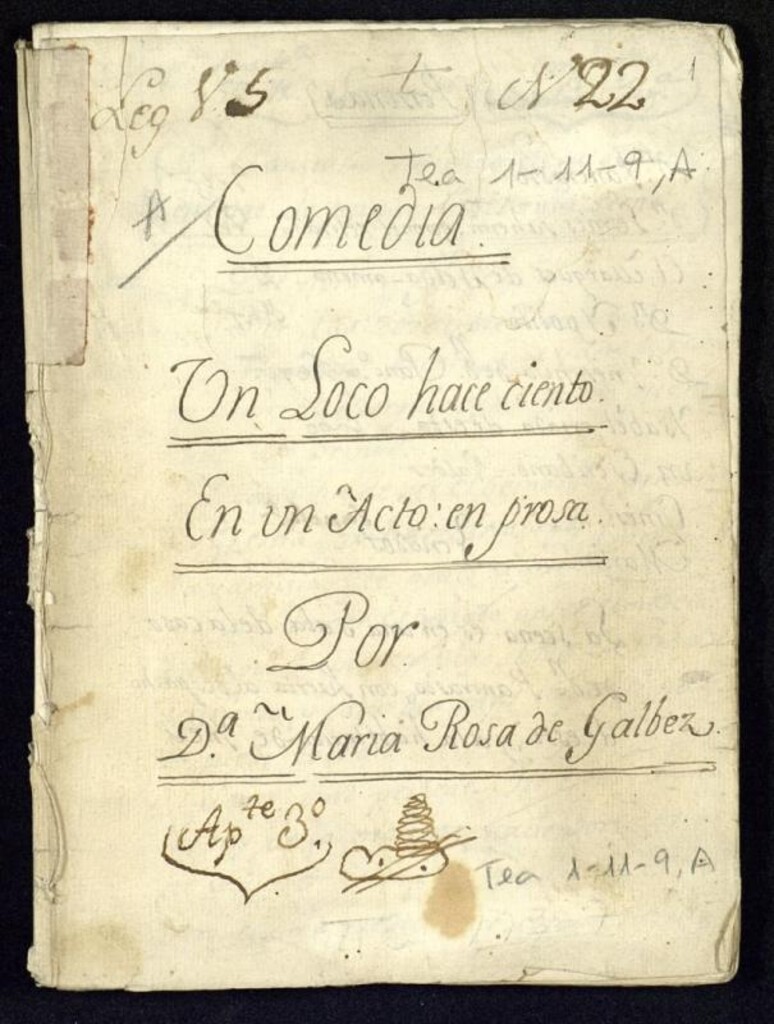 Leg V.5 N 22
1
Tea 1-11-9, A
A/ Comedia.
Un Loco hace ciento.
En un Acto: en prosa.
Por
D.ª Maria Rosa de Galbez.
Ap.te 3º
Tea 1-11-9, A